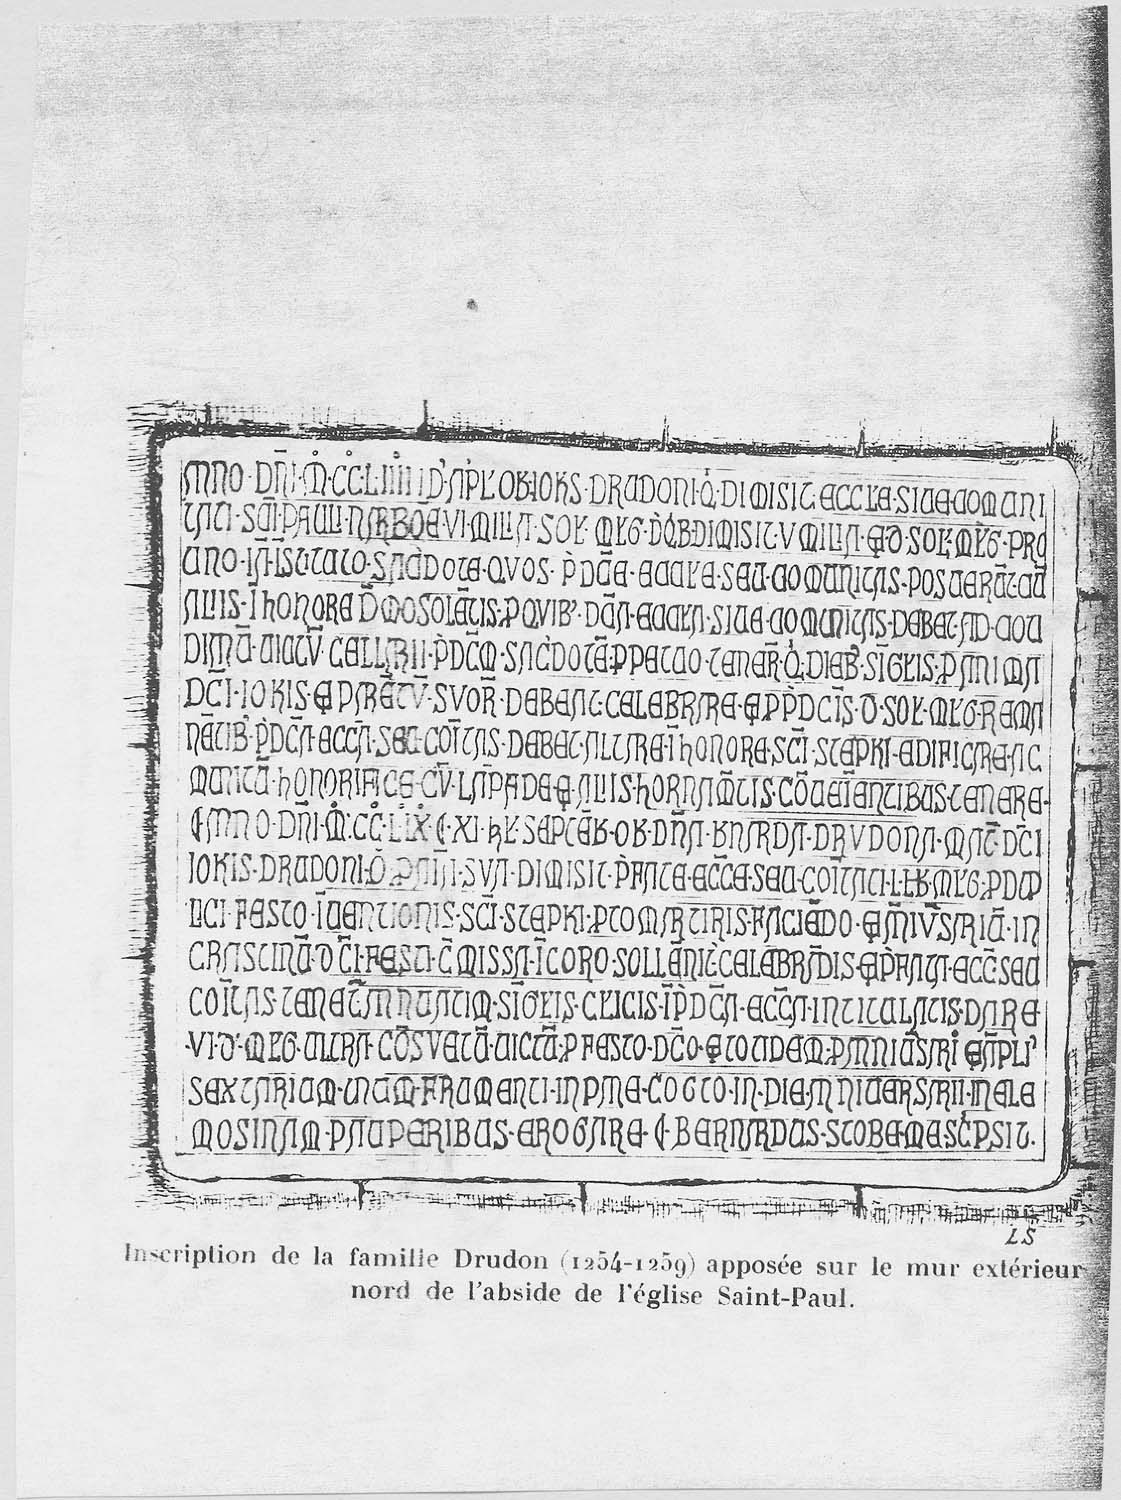 ANNO · DN̄I · M̊ · CC̊ · LIIII I D' · APL' OB · IOҺS · DRUDONI · Q̇ · DIMISIT ECCL'E · SIVE COMUNI
TATI · SC̄I · PAULI · NARBOÊ VI · MILIA · SOL' · ML'G · D'Q̇B DIMISIT · V MILIA · ET D̄ · SOL' ML'G · PRO
UNO · IĀ · ISTITUTO · SACDOTE · QVOS · P̀DC̄E · ECCL'E · SEU · COMUNITAS · POSUERAT · CŪ
ALIIS · Ī HONORE D̄MOSOLĒTIS · P QVIB' · DC̄A · ECCL'A · SIVE · COMUNITAS · DEBET · AD · COU
DC̄I · IOҺIS · ET PARĒTV̄ · SVOR̄ · DEBEAT · CELEBRARE · ET P P̀DCĪS · D̄ · SOL' · ML'G · REMA
NĒTIB' · P̀DC̄A · ECC̄A · SEU · COĪTAS · DEBET · ALTARE · Ī HONORE · SC̄I · STEPҺI · EDIFICARE · AC
MUNITŪ · HONORIFICE · CV̄ · LĀPADE ET ALIIS · HORNAM̄TIS · CŌUEĪENTIBUS · TENERE ·
ANNO · DN̄I · M̊ · CC̊ · LIX · XI · KL' · SEPTĒB · OB · DN̄A · B'NARDA · DRVDONA · MAT̄ · DC̄I
IOҺIS · DRUDONI · SVA · DIMISIT · P̀FATE · ECC̄E · SEU · COĪTATI · L · LB · ML'G · P DUP
LICI · FESTO · ĪUENTIONIS · SC̄I · STEPҺI · P̄TOMARTIRIS · FACIĒDO · ET ĀNIV̄SARIŪ · IN
CRASTINŪ · D̄C̄I · FESTI · C̄ MISSA · Ī CORO · SOLLĒNIT̀ CELEBRĀDIS · ET P̀FATA · ECC̄ · SEU
COĪTAS · TENET̄ ANNUATIM · SĪGL'IS · CL'ICIS · Ī P̀DC̄A · ECC̄A · INTITULATIS · DARE
· VI · D' · ML'G · ULTRA · CŌSVETŪ · VICTŪ · P FESTO · DC̄O · ET TOUDEM · P ANNIŪSARI ET ĀPLI'
SEXTARIUM · UNUM · FRUMENTI · IN PANE · COCTO · IN · DIE · ANNIUERSARII · IN ELE
MOSINAM · PAUPERIBUS · EROGARE · BERNARDUS · SCOBE · ME · SC̀PSIT ·
LS
Inscription de la famille Drudon (1254-1259) apposée sur le mur extérieur
nord de l'abside de l'église Saint-Paul.